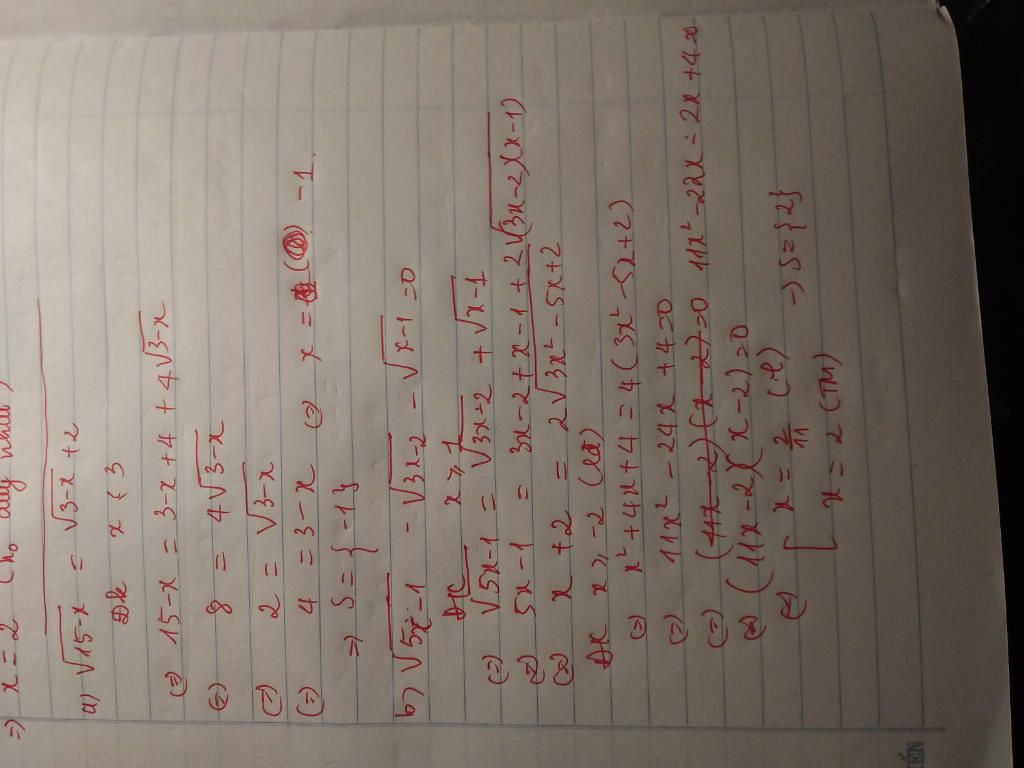 =) x = 2 (No duy nhất)
a) √15-x = √3-x + 2
Đk x ≤ 3
(=) 15-x = 3-x + 4 + 4√3-x
(=) 8 = 4√3-x
(=) 2 = √3-x
(=) 4 = 3-x (=) x = -1.
=) S = {-1}
b) √5x-1 - √3x-2 - √x-1 = 0
ĐK x ≥ 1
(=) √5x-1 = √3x-2 + √x-1
(=) 5x-1 = 3x-2 + x-1 + 2√(3x-2)(x-1)
(=) x+2 = 2√3x²-5x+2
ĐK x ≥ -2 (lđ)
(=) x²+4x+4 = 4(3x²-5x+2)
(=) 11x² - 24x + 4 = 0
(=) (11x-2)(x-2)=0 11x²-22x-2x+4=0
(=) (11x-2)(x-2)=0
(=) [ x = 2/11 (l)
x = 2 (TM) -> S={2}